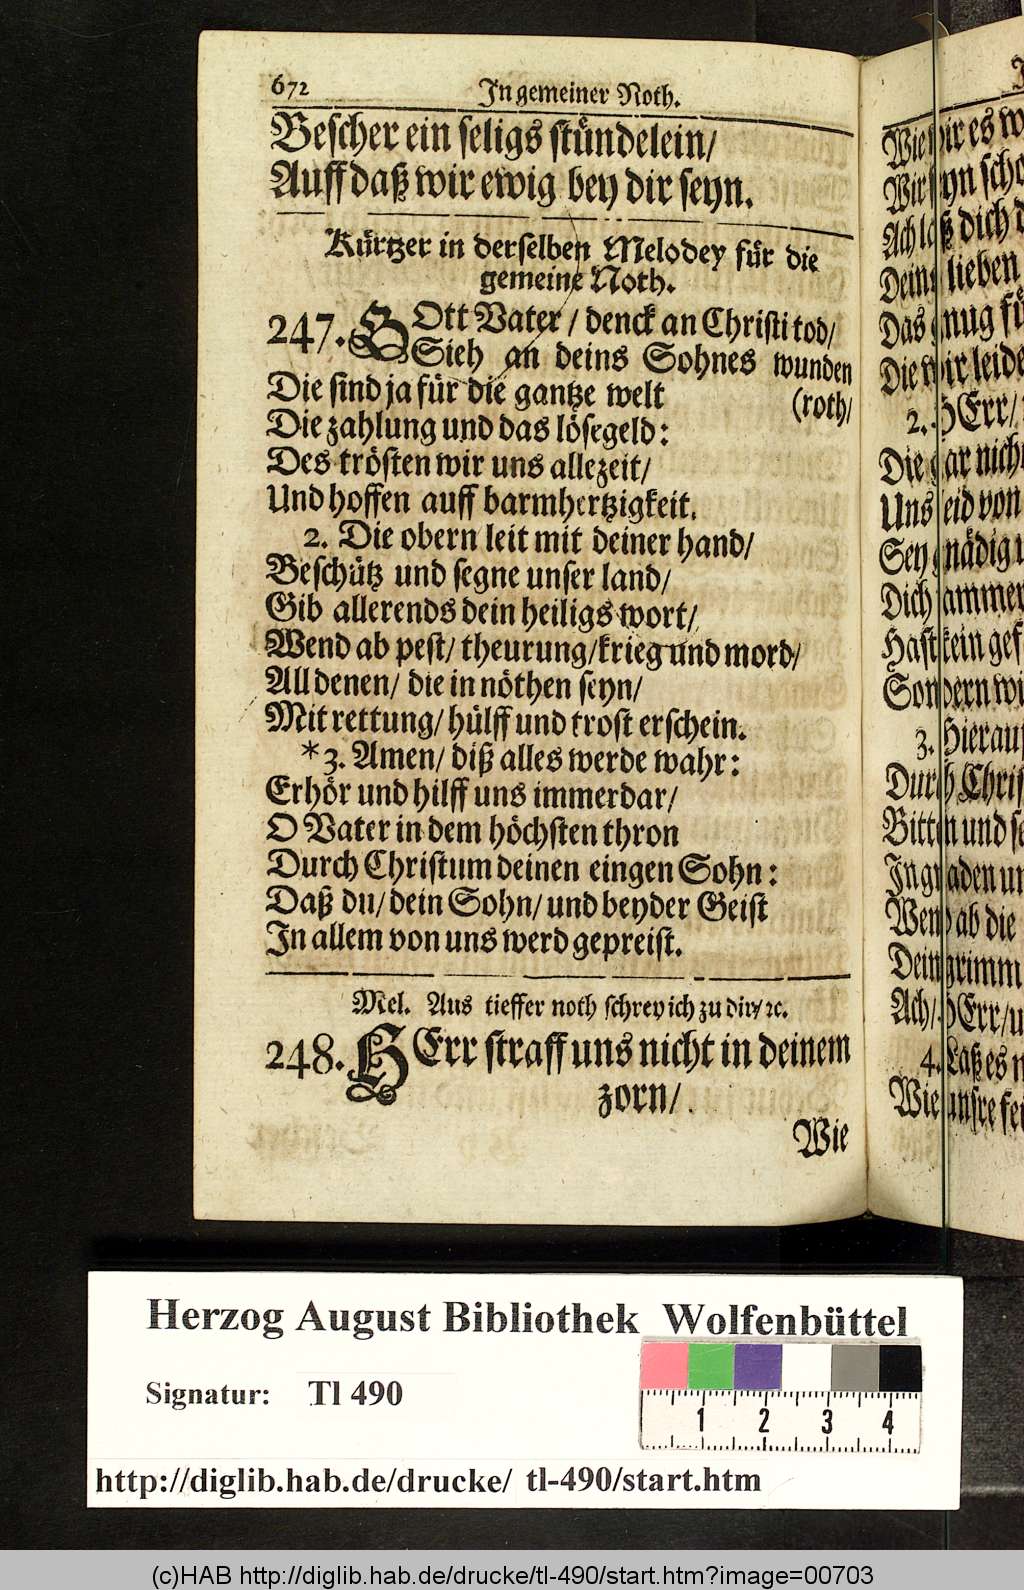 672 In gemeiner Noth.
Bescher ein seligs stündelein/
Auff daß wir ewig bey dir seyn.
Kürtzer in derselben Melodey für die
gemeine Noth.
247. GOtt Vater / denck an Christi tod/
Sieh an deins Sohnes wunden
Die sind ja für die gantze welt (roth/
Die zahlung und das lösegeld:
Des trösten wir uns allezeit/
Und hoffen auff barmhertzigkeit.
2. Die obern leit mit deiner hand/
Beschütz und segne unser land/
Gib allerends dein heiligs wort/
Wend ab pest/ theurung/krieg und mord/
All denen/ die in nöthen seyn/
Mit rettung/ hülff und trost erschein.
*3. Amen/ diß alles werde wahr:
Erhör und hilff uns immerdar/
O Vater in dem höchsten thron
Durch Christum deinen eingen Sohn:
Daß du/ dein Sohn/ und beyder Geist
In allem von uns werd gepreist.
Mel. Aus tieffer noth schrey ich zu dir/ ꝛc.
248. HErr straff uns nicht in deinem
zorn/
Wie
es
dich
lieben
2. HErr/
Die gar
Uns leid von
Sey gnädig
Dich
Hast kein
Sondern
3. Hierauf
Durch
Bitten und
In gnaden
Wend ab die
Dein grimm
Ach/ HErr/
4. Laß es
Wie unsre
Herzog August Bibliothek Wolfenbüttel
Signatur: Tl 490
1 2 3 4
http://diglib.hab.de/drucke/ tl-490/start.htm
(c)HAB http://diglib.hab.de/drucke/tl-490/start.htm?image=00703